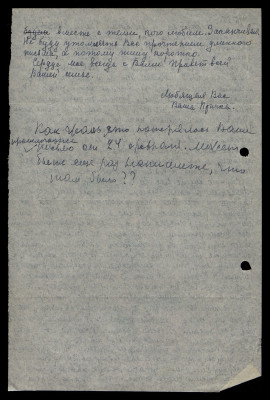 вместе с теми, кого любим. Заканчиваю.
Не буду утомлять Вас чтением длинного
письма, а потому пишу коротко.
Сердце мое всегда с Вами! Привет всей
Вашей семье.
Любящая Вас
Как жаль, что потерялось Ваше
письмо от 24 февраля. Может
быть еще раз напишете, что
там было??